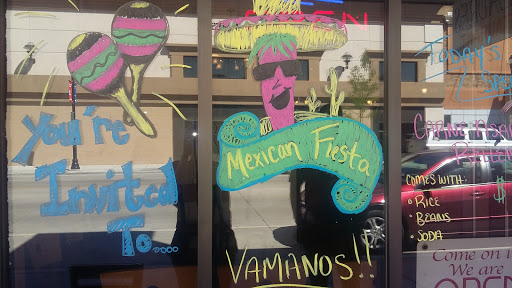 You're
Invited
To....
OPEN
Mexican Fiesta
VAMANOS!!
TODAY'S
COMES WITH:
• RICE
• BEANS
• SODA
$
Come on in
We are
OPEN